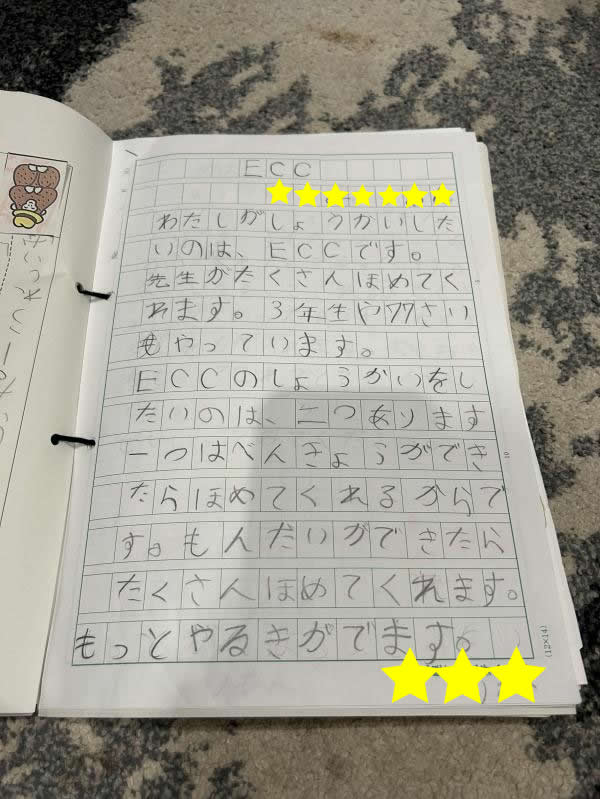 ECC
わたしがしょうかいした
いのは、ECCです。
先生がたくさんほめてく
れます。3年生や77さい
もやっています。
ECCのしょうかいをし
たいのは、二つあります
一つはべんきょうができ
たらほめてくれるからで
す。もんだいができたら
たくさんほめてくれます。
もっとやるきがでます。
(12×14)
10